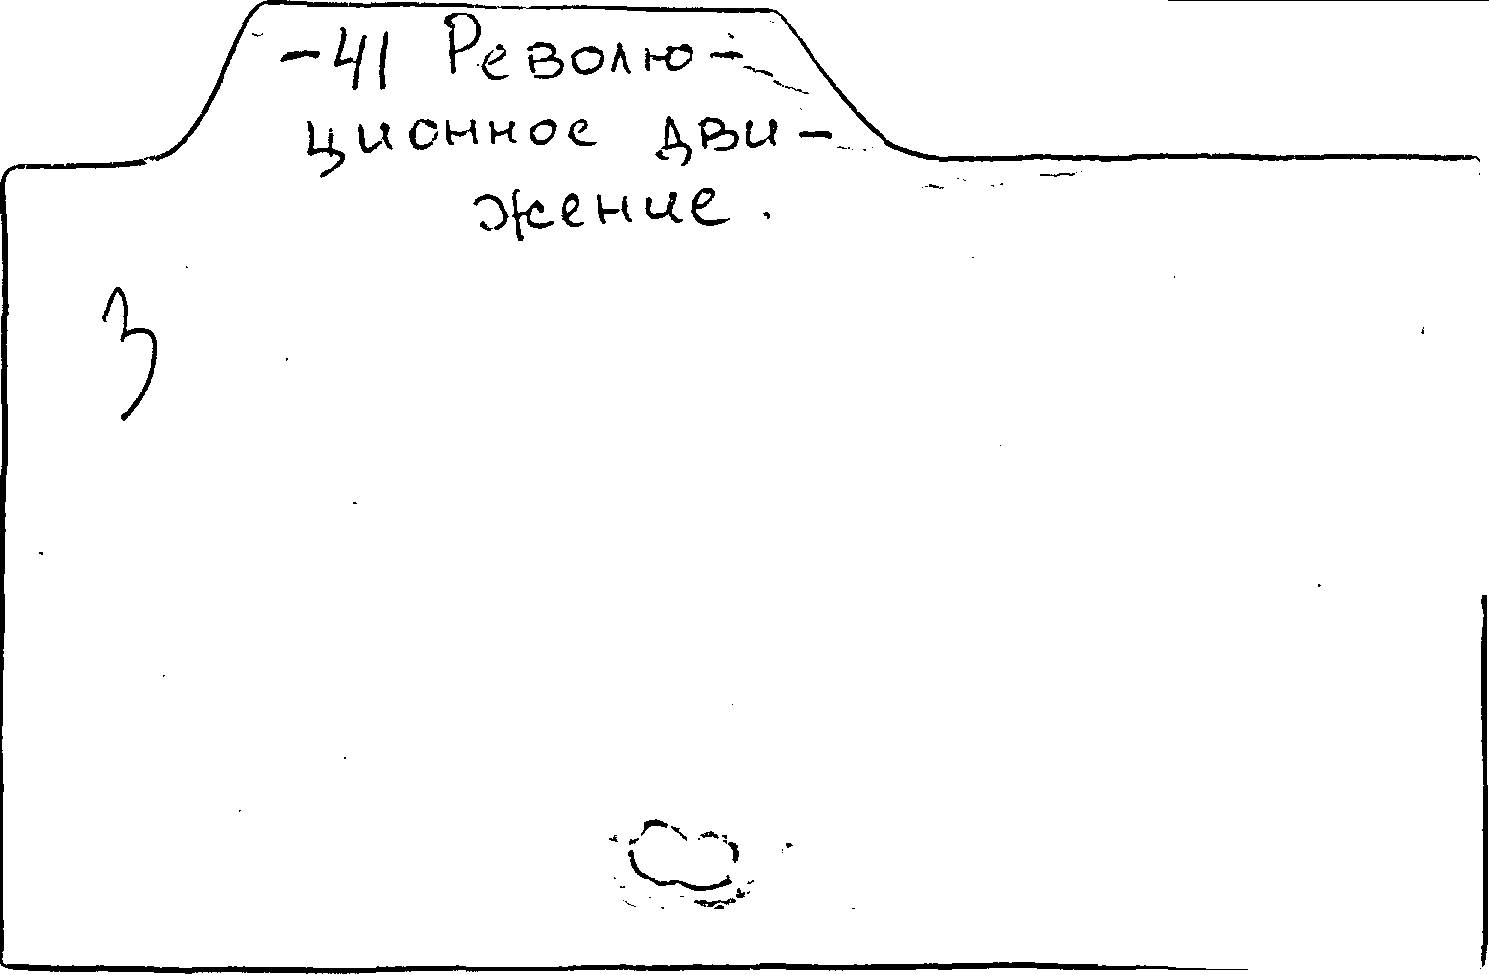 -41 Револю-
ционное дви-
жение.
3